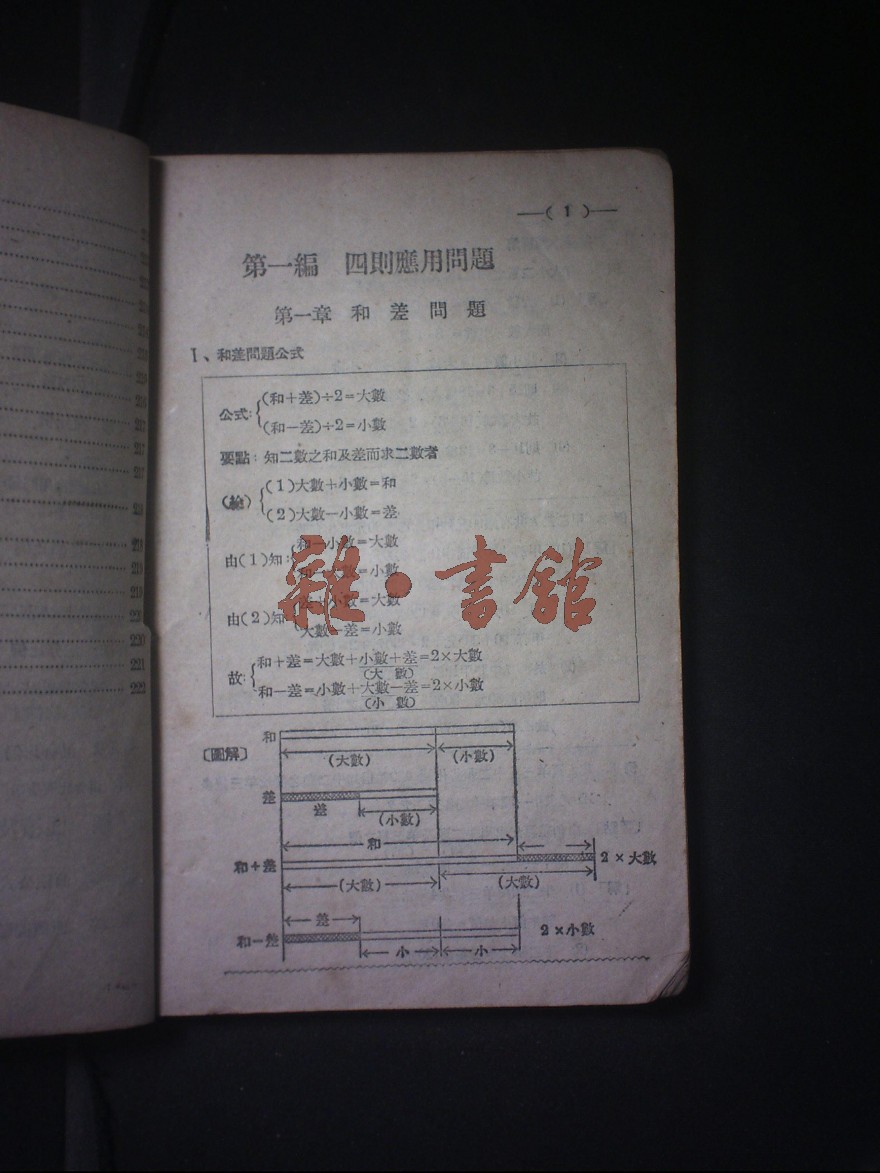 —( 1 )—
第一編 四則應用問題
第一章 和差問題
I、和差問題公式
公式:{(和+差)÷2=大數
(和-差)÷2=小數
要點:知二數之和及差而求二數者
(1)大數+小數=和
(2)大數-小數=差
由(1)知:{和-小數=大數
和-大數=小數
由(2)知 差+小數=大數
大數-差=小數
故:{和+差=大數+小數+差=2×大數
(大 數)
和-差=小數+大數-差=2×小數
(小 數)
雜·書館
〔圖解〕
和
(大數) (小數)
差
差 (小數)
和
和+差 2×大數
(大數) (大數)
差
和-差 2×小數
小 小
220
221
222